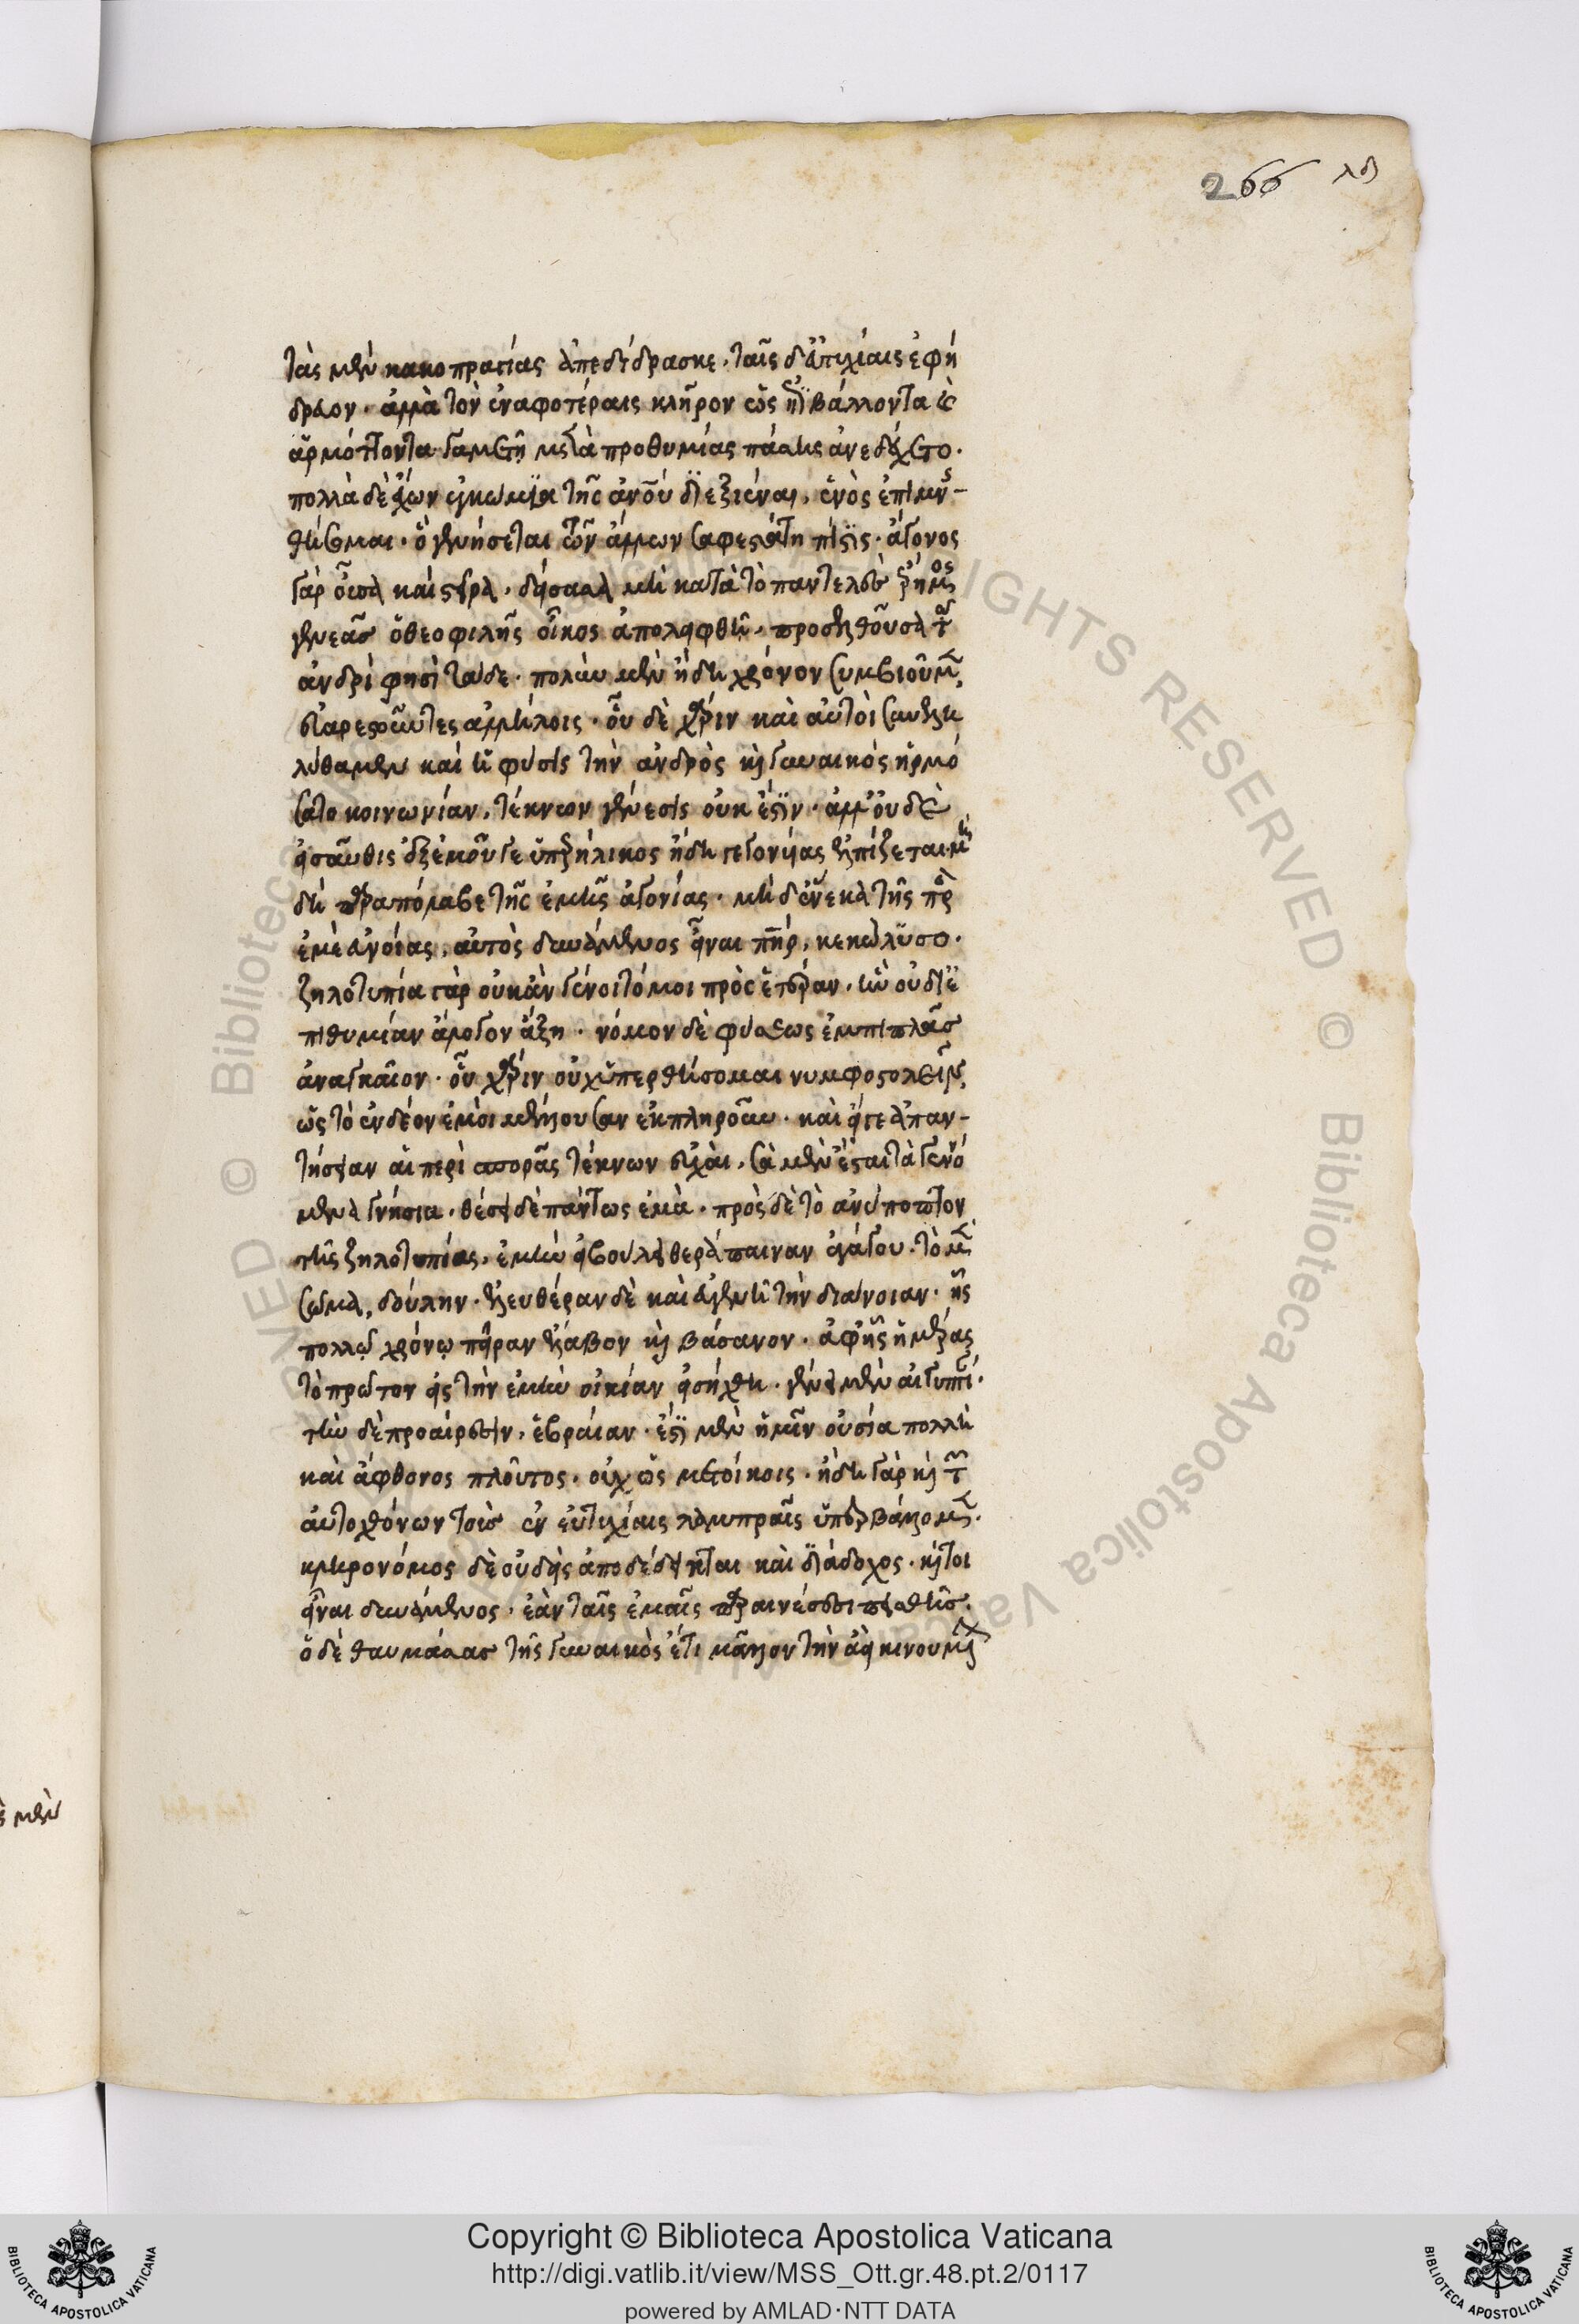 266 λδ
τὰς μὲν κακοπραγίας ἀπεδίδρασκε, ταῖς δ' εὐτυχίαις ἐφή
δραον· ἀλλὰ τὸν ἐν ἀμφοτέραις κλῆρον ὡς ἐπιβάλλοντα καὶ
ἁρμόττοντα γαμετῇ μετὰ προθυμίας πάσης ἀνεδέχετο.
πολλὰ δὲ ἔχων ἐγκώμια τῆς ἀνθρώπου διεξιέναι, ἑνὸς ἐπιμνη-
θήσομαι· ὃ γενήσεται τῶν ἄλλων σαφεστάτη πίστις· ἄγονος
γὰρ οὖσα καὶ στεῖρα, δείσασα μὴ κατὰ τὸ παντελὲς ἔρημος
γενεᾶς ὁ θεοφιλὴς οἶκος ἀπολειφθῇ, προσελθοῦσα τῷ
ἀνδρὶ φησὶ τάδε· πολὺν μὲν ἤδη χρόνον συμβιοῦμεν
εὐαρεστοῦντες ἀλλήλοις· οὗ δὲ χάριν καὶ αὐτοὶ συνελη
λύθαμεν καὶ ἡ φύσις τὴν ἀνδρὸς καὶ γυναικὸς ἡρμό
σατο κοινωνίαν, τέκνων γένεσις οὐκ ἔστιν· ἀλλ' οὐδὲ
εἰσαῦθις ἐξ ἐμοῦ γε ὑπερήλικος ἤδη γεγονυίας ἐλπίζεται· μὴ
δὴ παραπόλαβε τῆς ἐμῆς ἀγονίας· μὴ δ' ἕνεκα τῆς πρὸς
ἐμὲ εὐνοίας, αὐτὸς δυνάμενος εἶναι πατήρ, κεκώλυσο.
ζηλοτυπία γὰρ οὐκ ἂν γένοιτό μοι πρὸς ἑτέραν, ἣν οὐ δι' ἐ
πιθυμίαν ἄλογον ἄξῃ· νόμον δὲ φύσεως ἐμπιπλὰς
ἀναγκαῖον· οὗ χάριν οὐχ ὑπερθήσομαι νυμφοστολεῖν,
ὡς τὸ ἐνδέον ἐμοὶ μέλλουσαν ἐκπληροῦν· καὶ εἴγε ἀπαν-
τήσειαν αἱ περὶ σπορᾶς τέκνων εὐχαί, σὰ μὲν ἔσται τὰ γενό
μενα γνήσια· θέσει δὲ πάντως ἐμά· πρὸς δὲ τὸ ἀνύποπτον
τῆς ζηλοτυπίας, ἐμὴν εἰ βούλει θεράπαιναν ἀγάγου· τὸ μὲν
σῶμα, δούλην· ἐλευθέραν δὲ καὶ εὐγενῆ τὴν διάνοιαν· ἧς
πολλῷ χρόνῳ πεῖραν ἔλαβον καὶ βάσανον· ἀφ' ἧς ἡμέρας
τὸ πρῶτον εἰς τὴν ἐμὴν οἰκίαν εἰσήχθη· γένει μὲν αἰγυπτί·
τὴν δὲ προαίρεσιν, ἑβραίαν· ἔστι μὲν ἡμῖν οὐσία πολλὴ
καὶ ἄφθονος πλοῦτος· οὐχ ὡς μετοίκοις· ἤδη γὰρ καὶ τῶν
αὐτοχθόνων τοὺς ἐν εὐτυχίαις λαμπραῖς ὑπερβάλλομεν·
κληρονόμος δὲ οὐδεὶς ἀποδέδεικται καὶ διάδοχος· καίτοι
εἶναι δυνάμενος, ἐὰν ταῖς ἐμαῖς παραινέσεσι πεισθῇς.
ὁ δὲ θαυμάσας τῆς γυναικὸς ἔτι μᾶλλον τὴν ἀεὶ κινουμένην
ς μὲν
Copyright © Biblioteca Apostolica Vaticana
http://digi.vatlib.it/view/MSS_Ott.gr.48.pt.2/0117
powered by AMLAD·NTT DATA